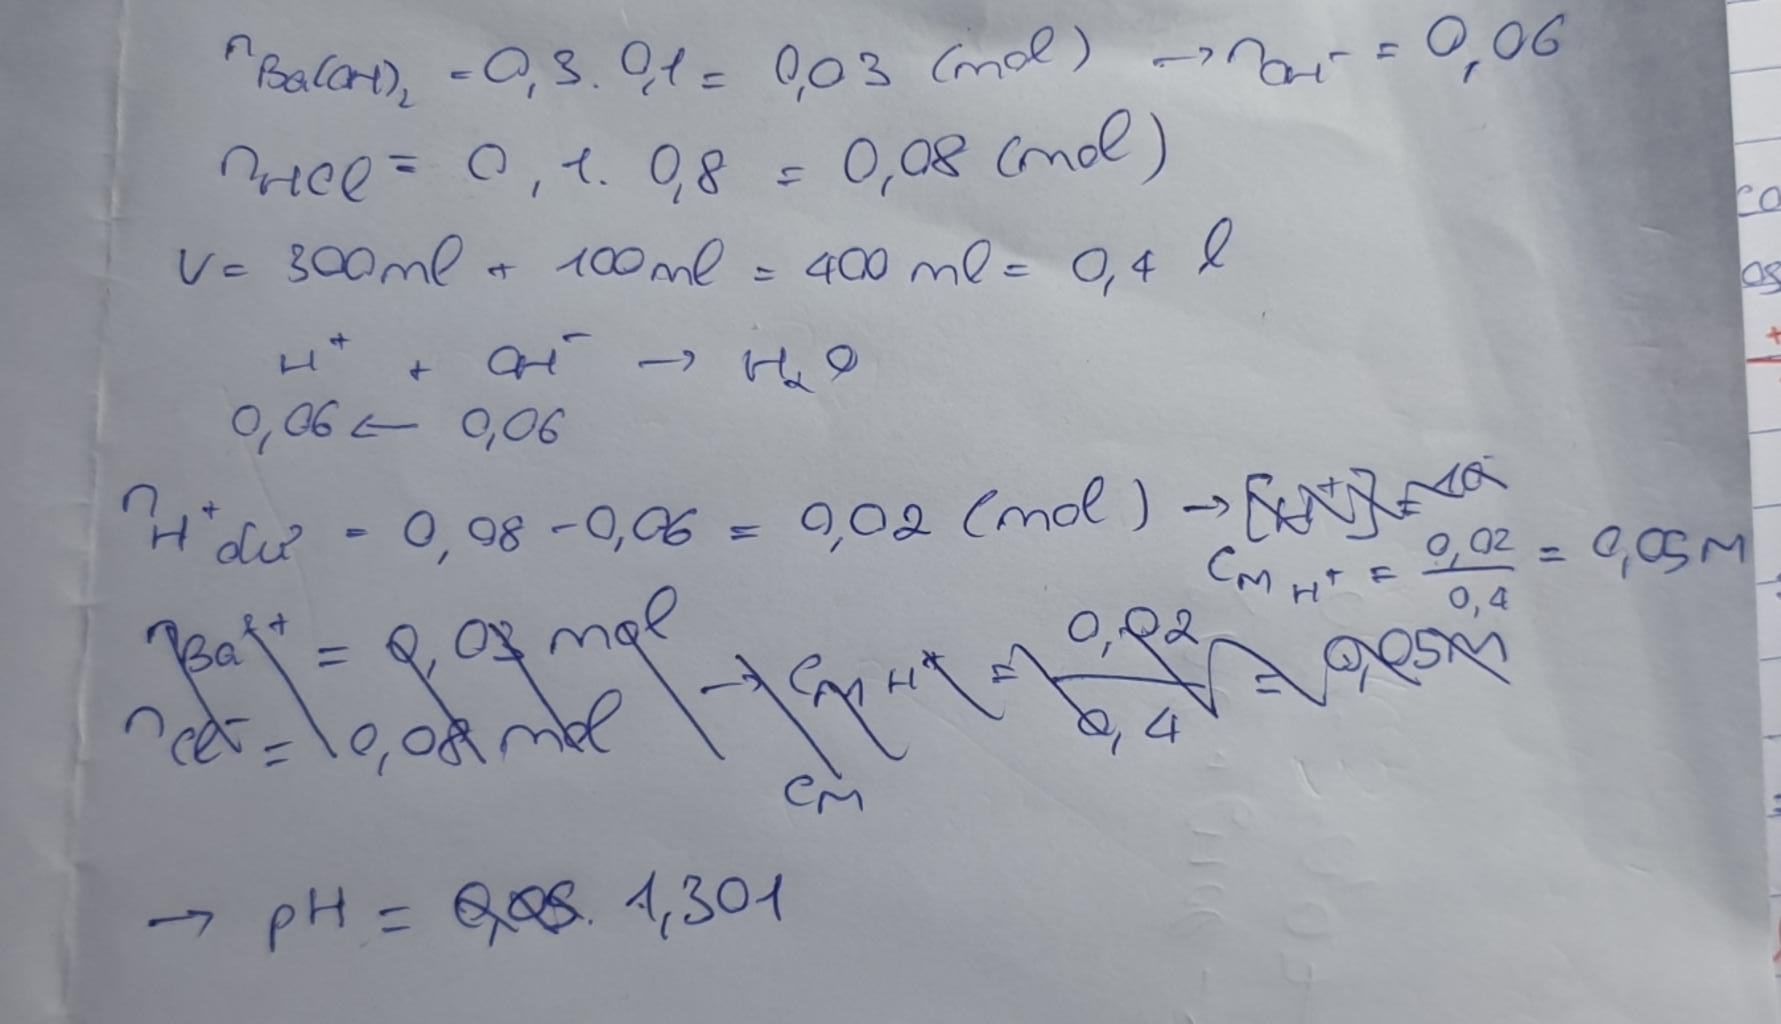 nBa(OH)₂ = 0,3. 0,1 = 0,03 (mol) → nOH⁻ = 0,06
nHCl = 0,1. 0,8 = 0,08 (mol)
V = 300ml + 100ml = 400 ml = 0,4 l
H⁺ + OH⁻ → H₂O
0,06 ← 0,06
nH⁺dư = 0,08 - 0,06 = 0,02 (mol) → [H⁺] = 10⁻
CM H⁺ = 0,02/0,4 = 0,05M
nBa²⁺ = 0,03 mol → CM H⁺ = 0,02/0,4 = 0,05M
nCl⁻ = 0,08 mol
CM
→ pH = 0,05. 1,301